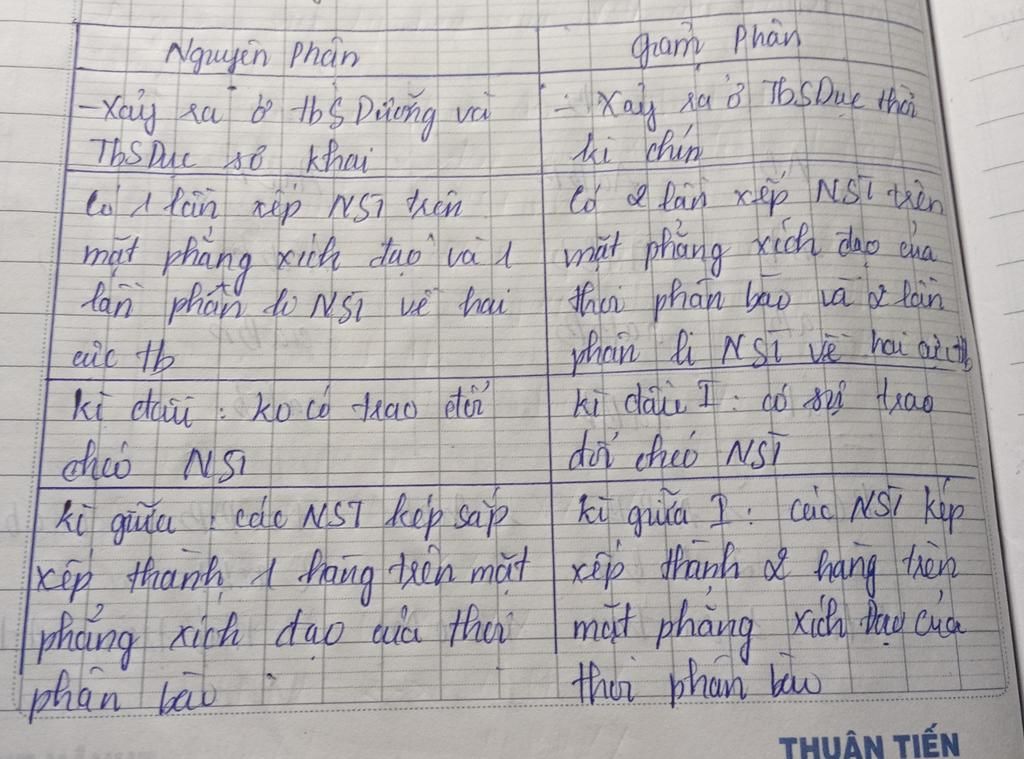 Nguyên Phân
Giảm Phân
- Xảy ra ở tbS Dưỡng và
TbSDuc sơ khai
- Xảy ra ở TbSDuc thời
kì chín
Có 1 lần xếp NST trên
mặt phẳng xích đạo và 1
lần phân li NST về hai
cực tb
Có 2 lần xếp NST trên
mặt phẳng xích đạo của
thoi phân bào và 2 lần
phân li NST về hai cực tb
kì đầu : ko có trao đổi
chéo NST
kì đầu I : có sự trao
đổi chéo NST
kì giữa : các NST kép sắp
xếp thành 1 hàng trên mặt
phẳng xích đạo của thoi
phân bào
kì giữa I : các NST kép
xếp thành 2 hàng trên
mặt phẳng xích đạo của
thoi phân bào
THUẬN TIẾN